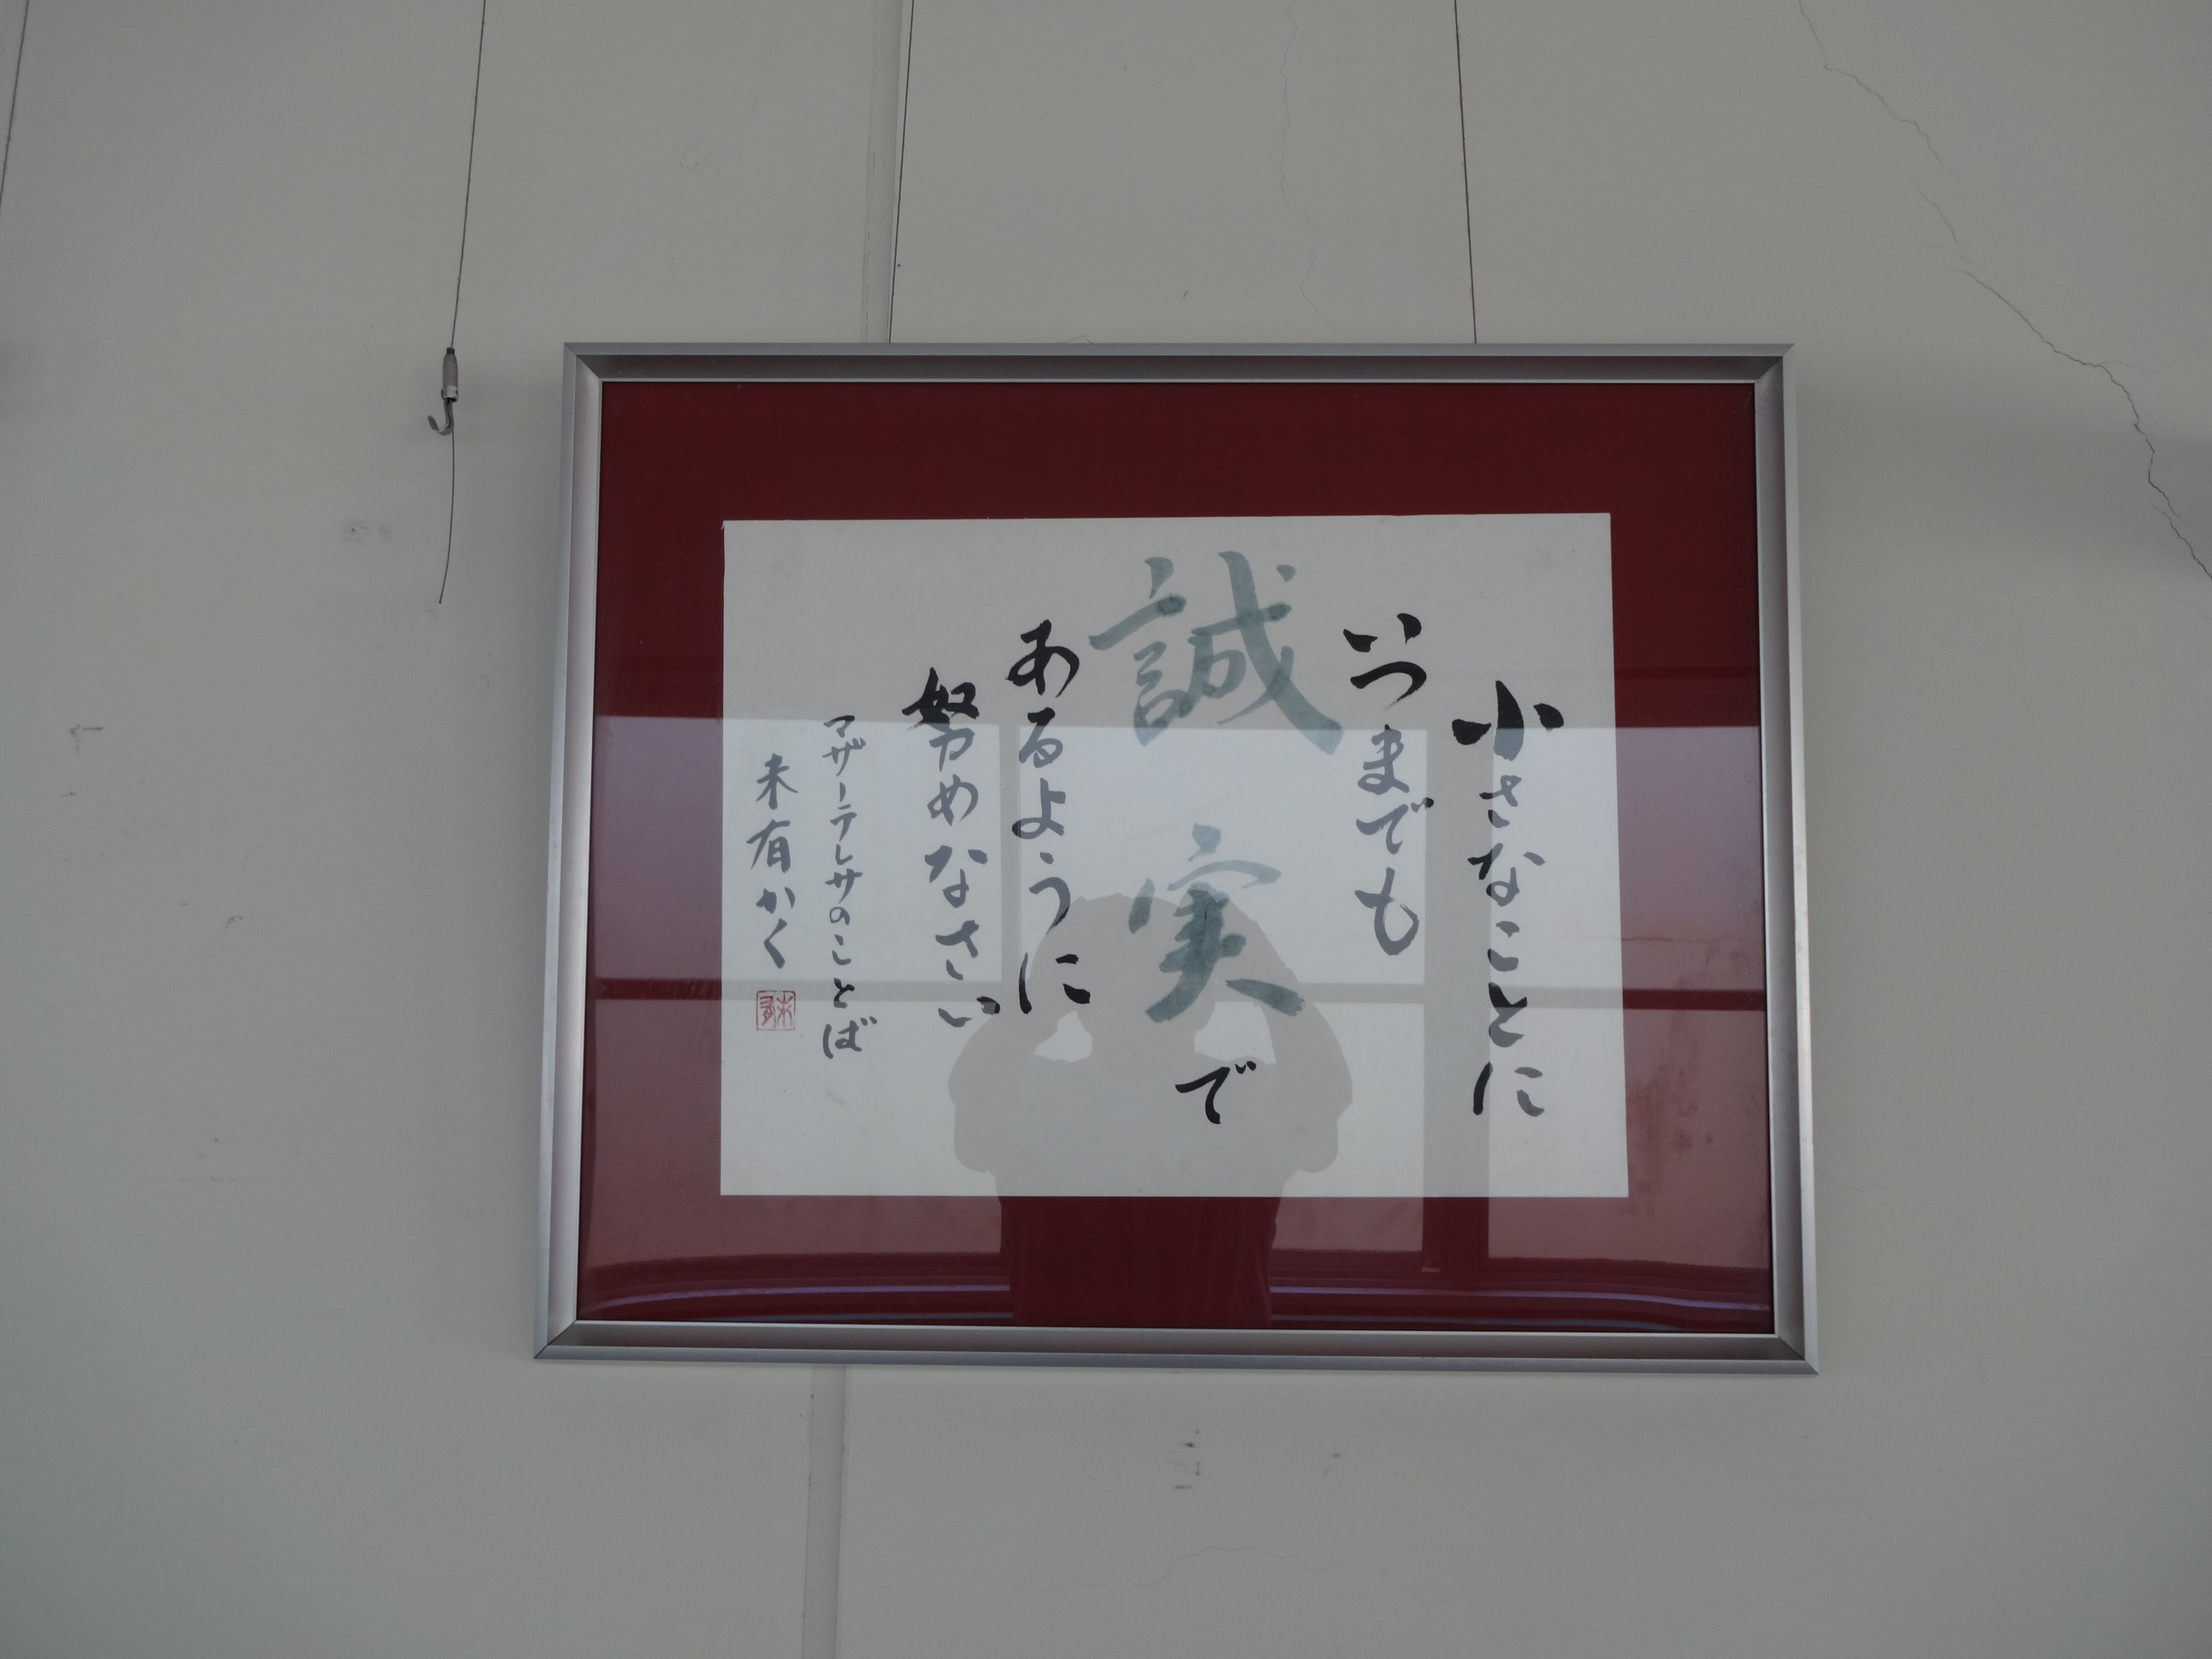 小さなことに
いつまでも
誠実で
あるように
努めなさい
マザーテレサのことば
未有かく
未有